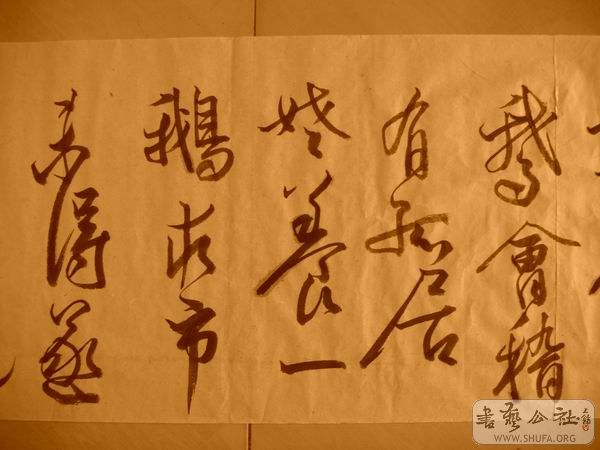 鵞會稽
有孤居
姥養一
鵝求市
未得遂
書藝公社
WWW.SHUFA.ORG